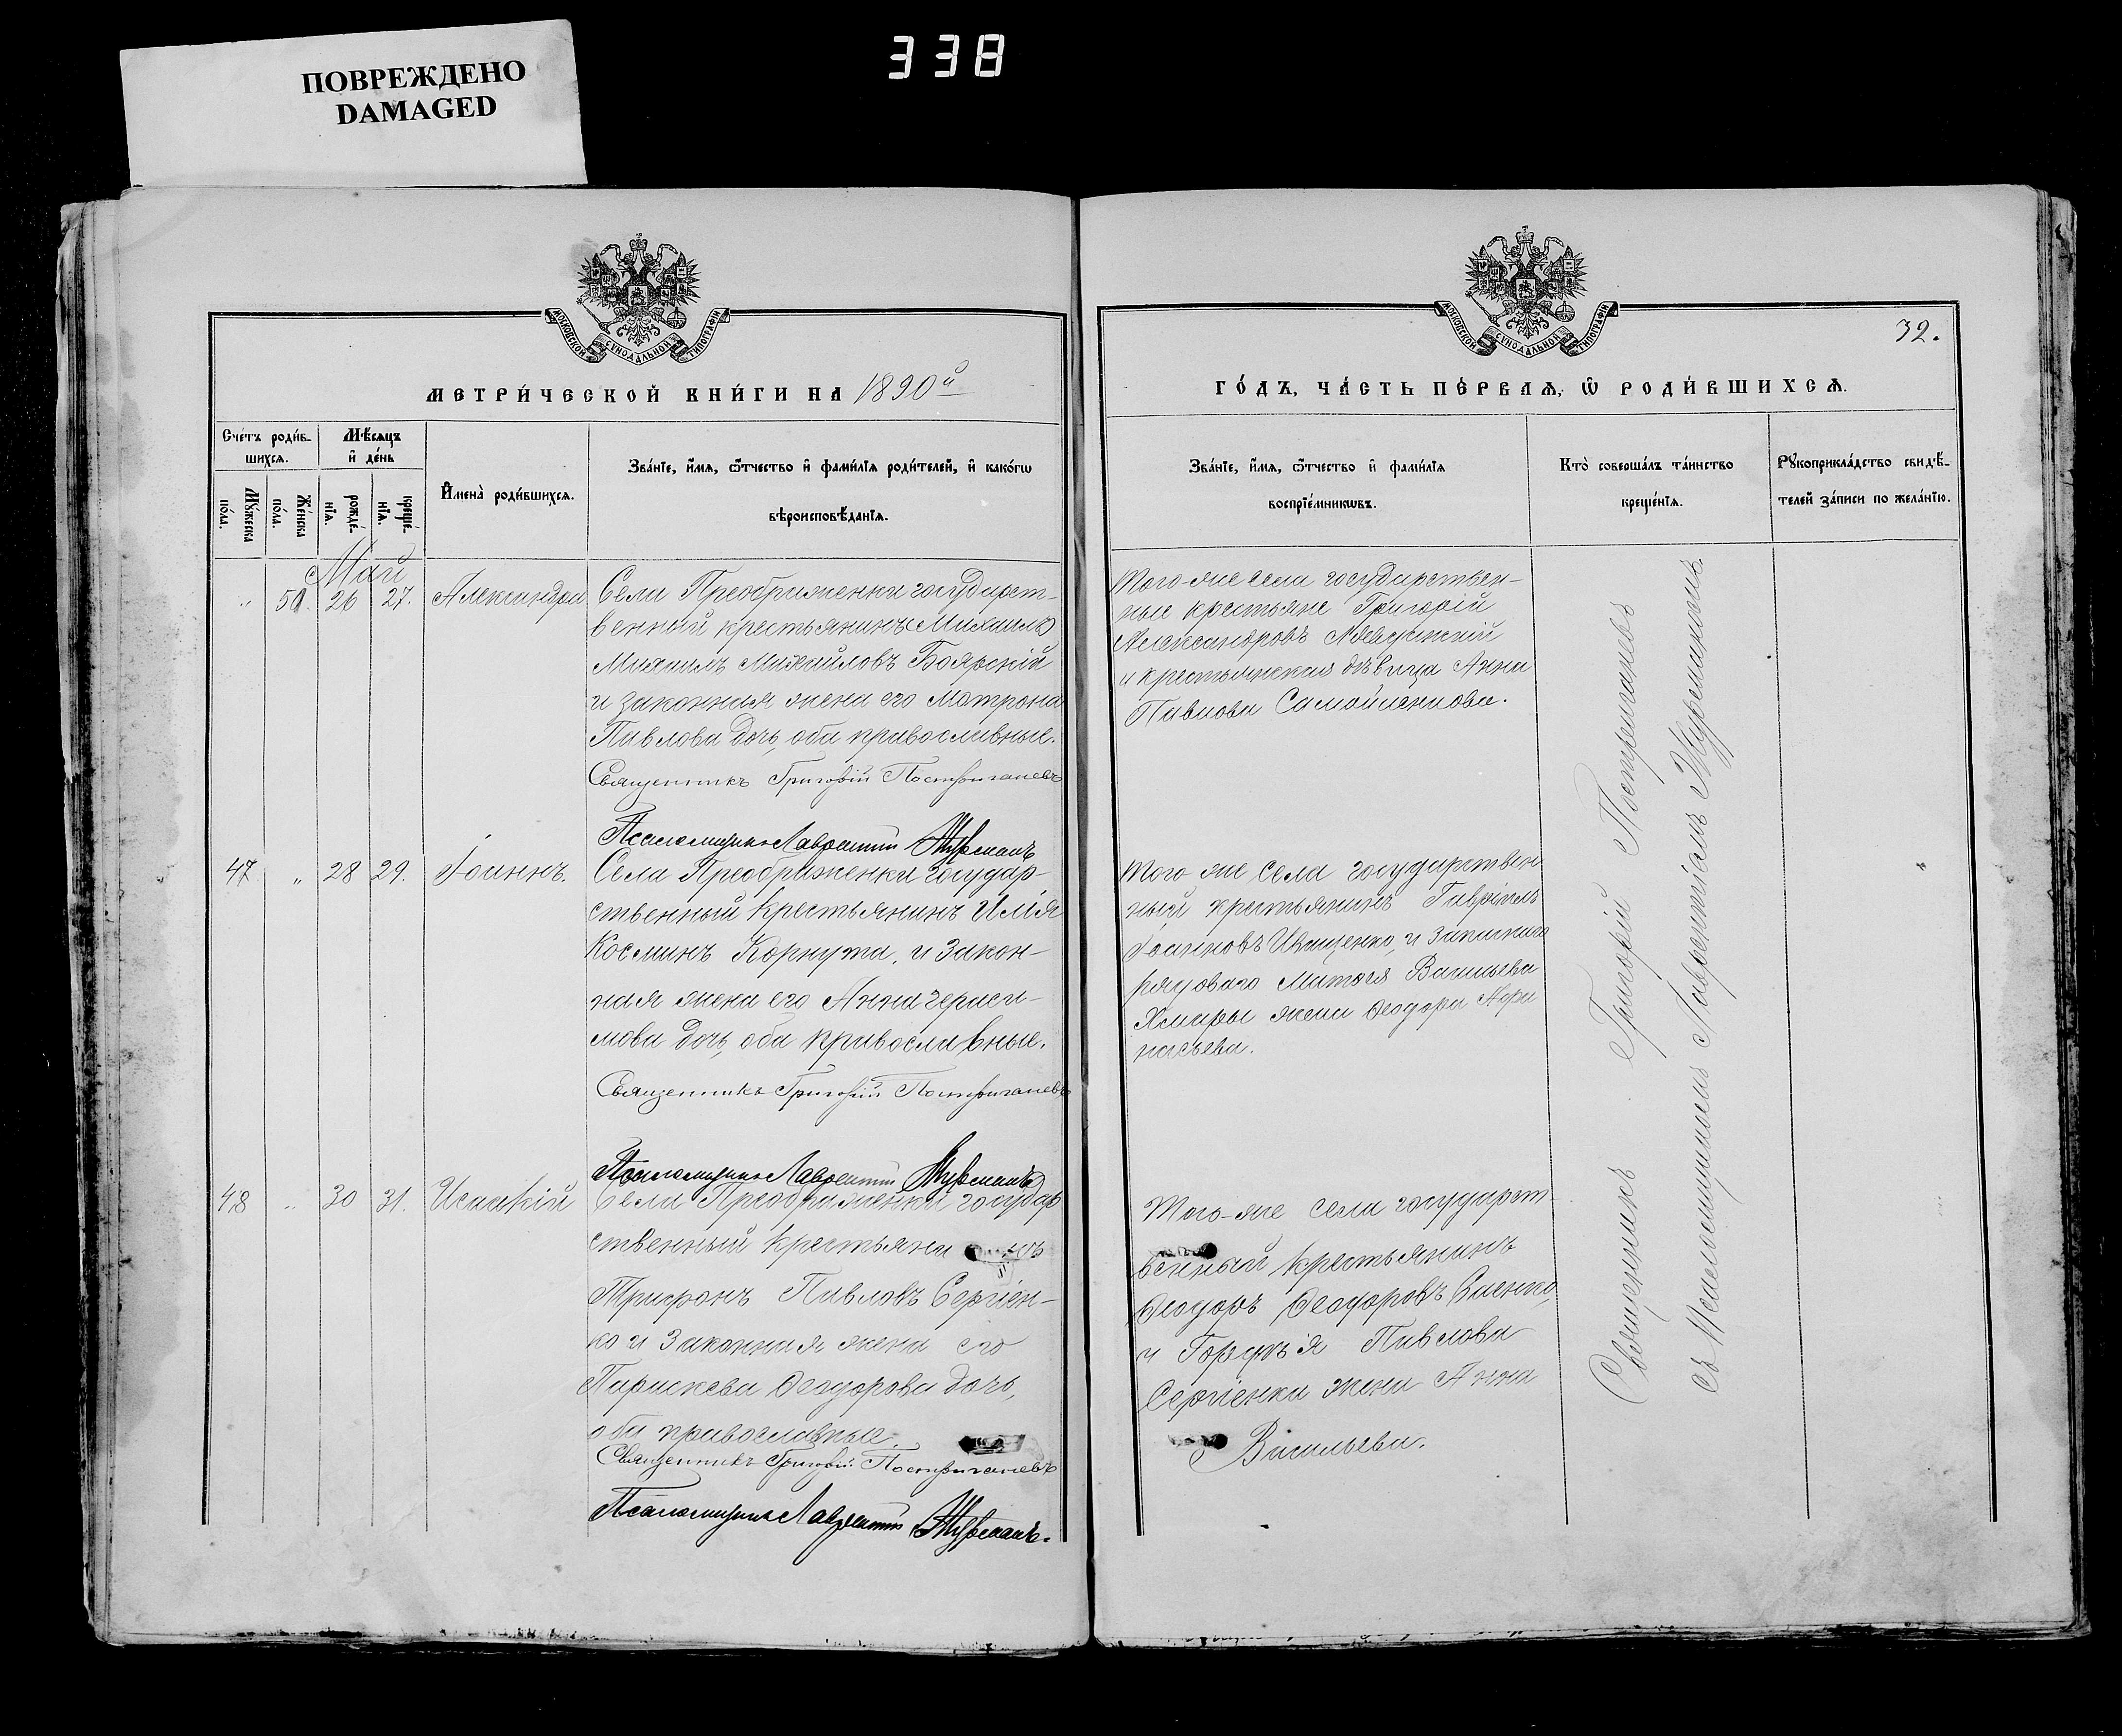 ПОВРЕЖДЕНО
DAMAGED
338
МОСКОВСКОЙ СѴНОДАЛЬНОЙ ТИПОГРАФІИ
МЕТРИ́ЧЕСКОЙ КНИ́ГИ НА 1890й
Сче́тъ роди́в-
шихсѧ.
Мѣ́сѧцъ
и҆ де́нь
Мꙋ́жеска
по́ла.
Же́нска
по́ла.
рожде́-
нїѧ.
креще́-
нїѧ.
И҆мена̀ роди́вшихсѧ.
Зва́нїе, и҆́мѧ, ѻ҆́тчество и҆ фами́лїѧ роди́телей, и҆ како́гѡ
вѣроисповѣ́данїѧ.
Май
" 51. 26 27. Александра
Села Преображенки государст-
венный крестьянинъ Михаилъ
Михаилъ Михайловъ Боярскій
и законная жена его Матрона
Павлова дочь, оба православные.
Священникъ Григорій Постриганевъ
Псаломщикъ Лаврентій Журманъ
47 " 28 29. Іоаннъ.
Села Преображенки государ-
ственный крестьянинъ Илія
Косминъ Корнута, и закон-
ная жена его Анна Гераси-
мова дочь, оба православные.
Священникъ Григорій Постриганевъ
Псаломщикъ Лаврентій Журманъ
48 " 30 31. Исаакій
Села Преображенки государ
ственный крестьяни нъ
Трифонъ Павловъ Сергіен-
ко и законная жена его
Параскева Ѳеодорова дочь,
оба православные.
Священникъ Григорій Постриганевъ
Псаломщикъ Лаврентій Журманъ.
МОСКОВСКОЙ СѴНОДАЛЬНОЙ ТИПОГРАФІИ
32.
ГО́ДЪ, ЧА́СТЬ ПЕ́РВАѦ, Ѡ҆ РОДИ́ВШИХСѦ.
Зва́нїе, и҆́мѧ, ѻ҆́тчество и҆ фами́лїѧ
воспрїе́мникѡвъ.
Кто̀ соверша́лъ та́инство
креще́нїѧ.
Рꙋкоприкла́дство свидѣ́-
телей за́писи по жела́нїю.
Того-же села государствен-
ные крестьяне Григорій
Александровъ
и крестьянская дѣвица Анна
Павлова Самойленкова.
Того же села государствен
ный крестьянинъ Гавріилъ
Іоанновъ Иващенко, и запаснаго
рядоваго Матѳея Васильева
Хмары жена Ѳеодора Афа
насьева.
Того-же села государст-
венный крестьянинъ
Ѳеодоръ Ѳеодоровъ
и Гордѣя Павлова
Сергіенка жена Анна
Васильева.
Священникъ Григорій Постриганевъ
съ Псаломщикомъ Лаврентіемъ Журманомъ